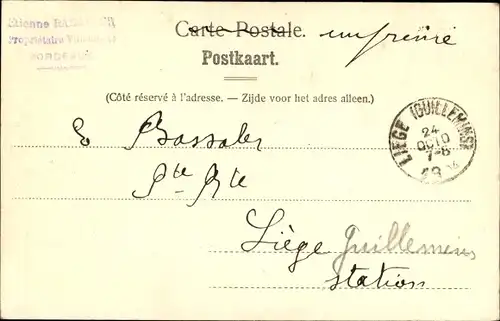 Etienne
Propriétaire
BORDEAUX
Carte Postale. imprimé
Postkaart.
(Côté réservé à l'adresse. — Zijde voor het adres alleen.)
LIÉGE (GUILLEMINS)
24
OCTO
7-8
E Bassaler
Pte Rte
Liége Guillemins
station